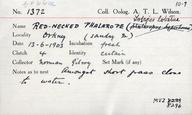 10-9
No. 1372 Coll. Oolog. A. T. L. Wilson.
Lobipes lobatus
Name RED-NECKED PHALAROPE
Locality Orkney (Sanday I.)
Date 13-6-1903 Incubation fresh
Clutch 4 Identity Certain
Collector Norman Gilroy Set Mark (if any)
Notes as to nest Amongst short grass close
to water.
MVZ